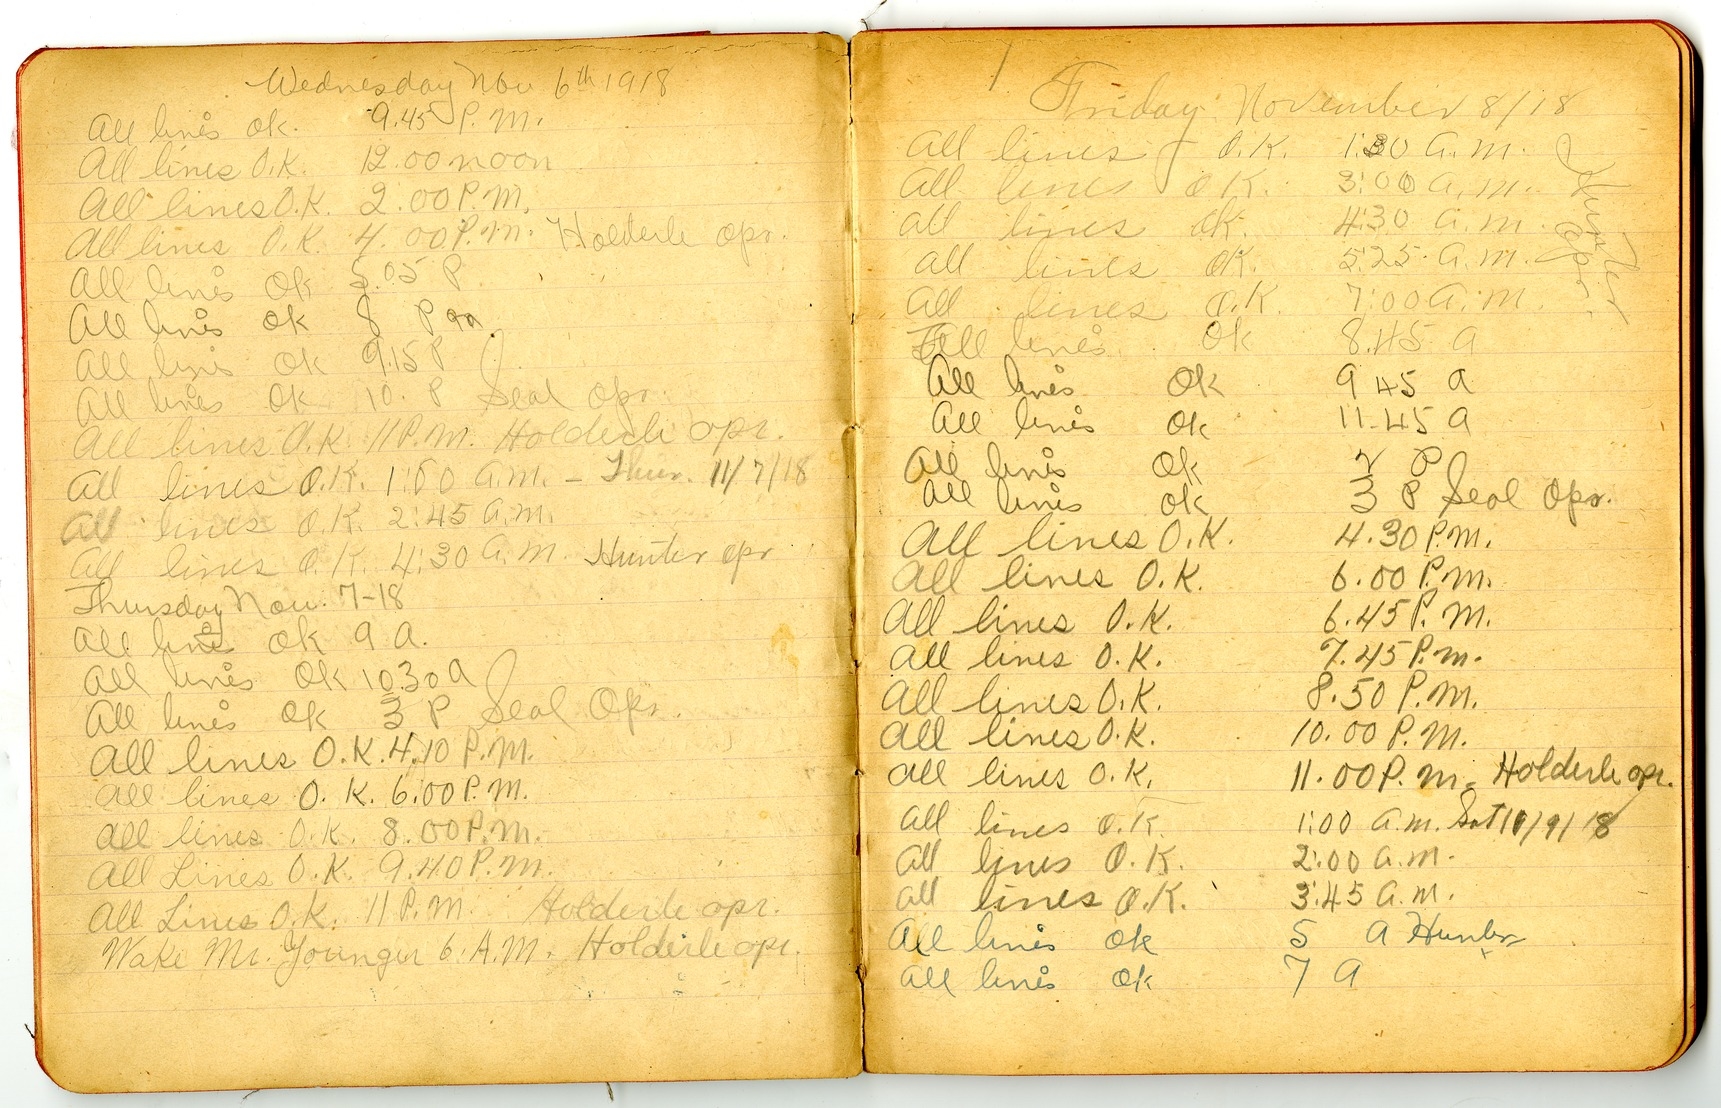 Wednesday Nov 6th 1918
All lines ok. 9.45 P.M.
All lines O.K. 12.00 noon
All lines O.K. 2.00 P.M.
All lines O.K. 4.00 P.M. Holderle opr.
All lines ok 5.05 P
All lines ok 8 P m.
All lines ok 9.15 P
All lines ok 10. P Seal Opr.
All lines O.K. 11 P.M. Holderle opr.
All lines O.K. 1:00 A.M. - Thur. 11/7/18
All lines O.K. 2:45 A.M.
All lines O.K. 4:30 A.M. Hunter opr
Thursday Nov. 7-18
All lines ok 9 A.
All lines ok 1030 a
All lines ok 3 P Seal Opr.
All lines O.K. 4.10 P.M.
All lines O.K. 6.00 P.M.
All lines O.K. 8.00 P.M.
All Lines O.K. 9.40 P.M.
All Lines O.K. 11 P.M. Holderle opr.
Wake Mr. Younger 6 A.M. Holderle opr.
Friday November 8/18
All lines O.K. 1:30 A.M.
All lines O.K. 3:00 A.M.
all lines ok. 4:30 A.M.
all lines OK. 5:25 A.M.
All lines O.K. 7:00 A.M.
Hunter Opr.
All lines ok 8.45 a
All lines ok 9 45 a
All lines ok 11.45 a
All lines ok 2 P
All lines ok 3 P Seal Opr.
All lines O.K. 4.30 P.M.
All lines O.K. 6.00 P.M.
All lines O.K. 6.45 P.M.
All lines O.K. 7.45 P.M.
All lines O.K. 8.50 P.M.
All lines O.K. 10.00 P.M.
All lines O.K. 11.00 P.M. Holderle opr.
All lines O.K. 1:00 A.M. Sat 11/9/18
All lines O.K. 2:00 A.M.
all lines O.K. 3:45 A.M.
All lines ok 5 A Hunter
All lines ok 7 A